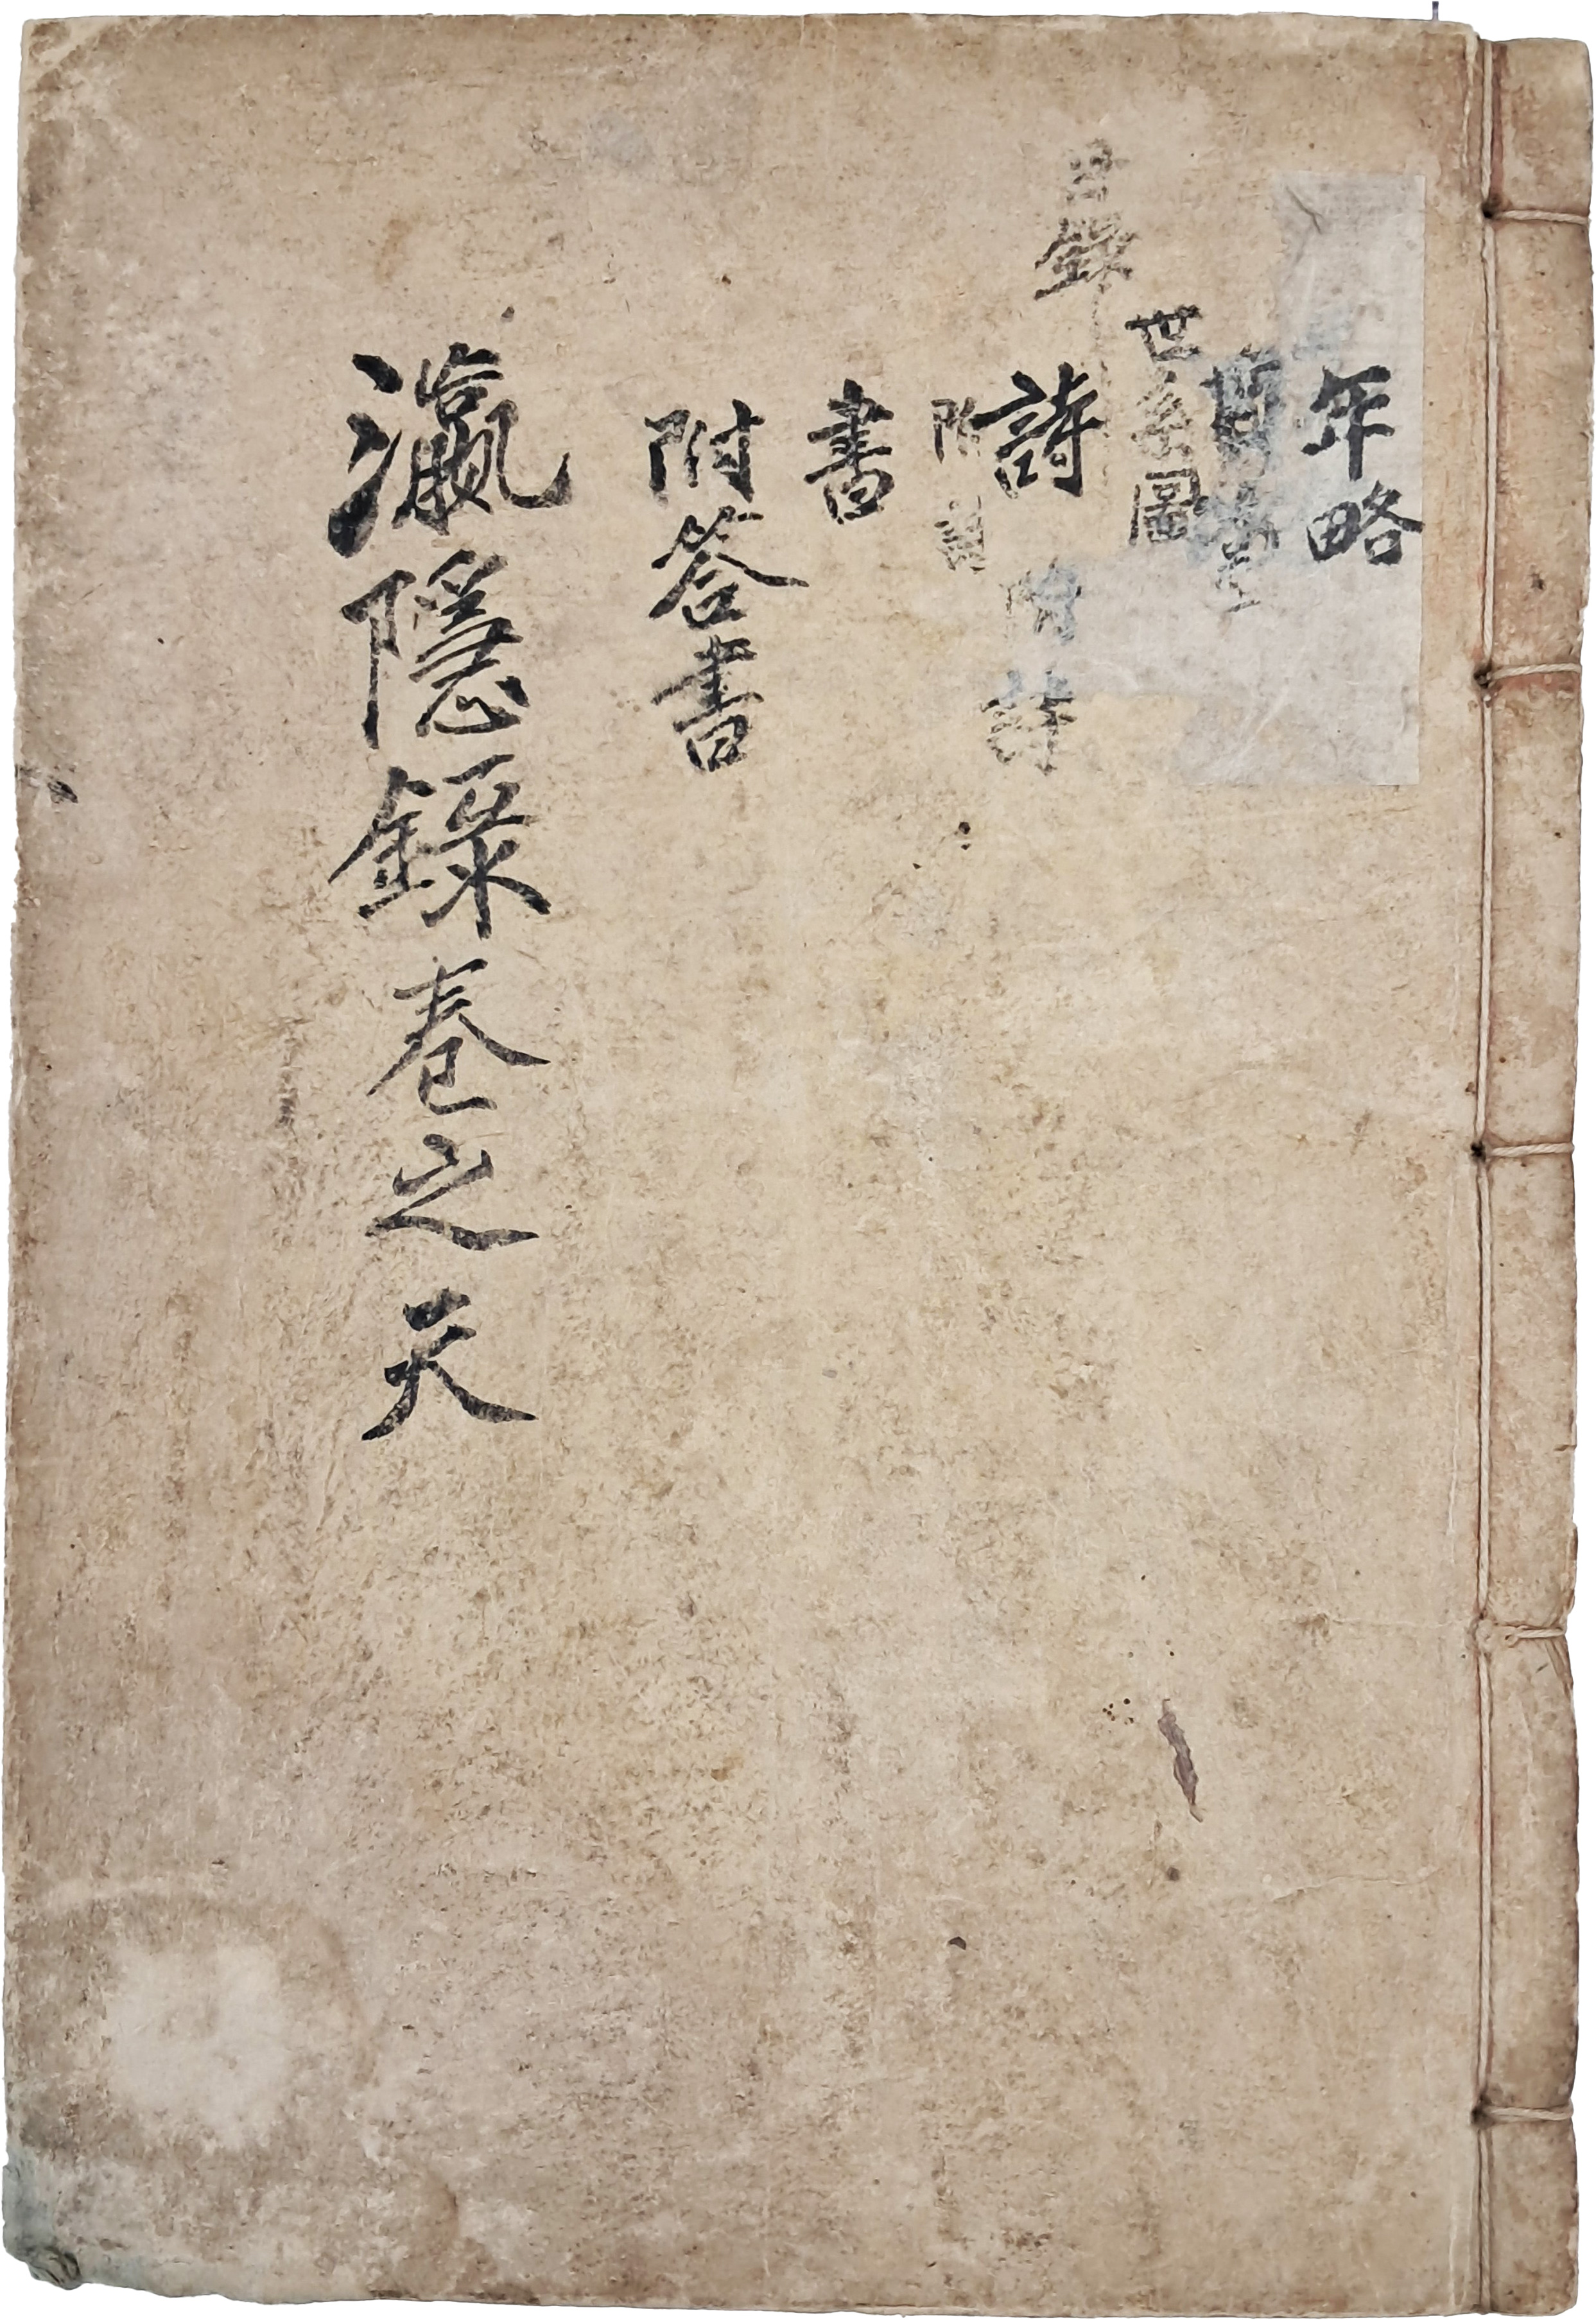 年略
世系圖
目錄
詩
附詩
書
附答書
瀛隱錄卷之天